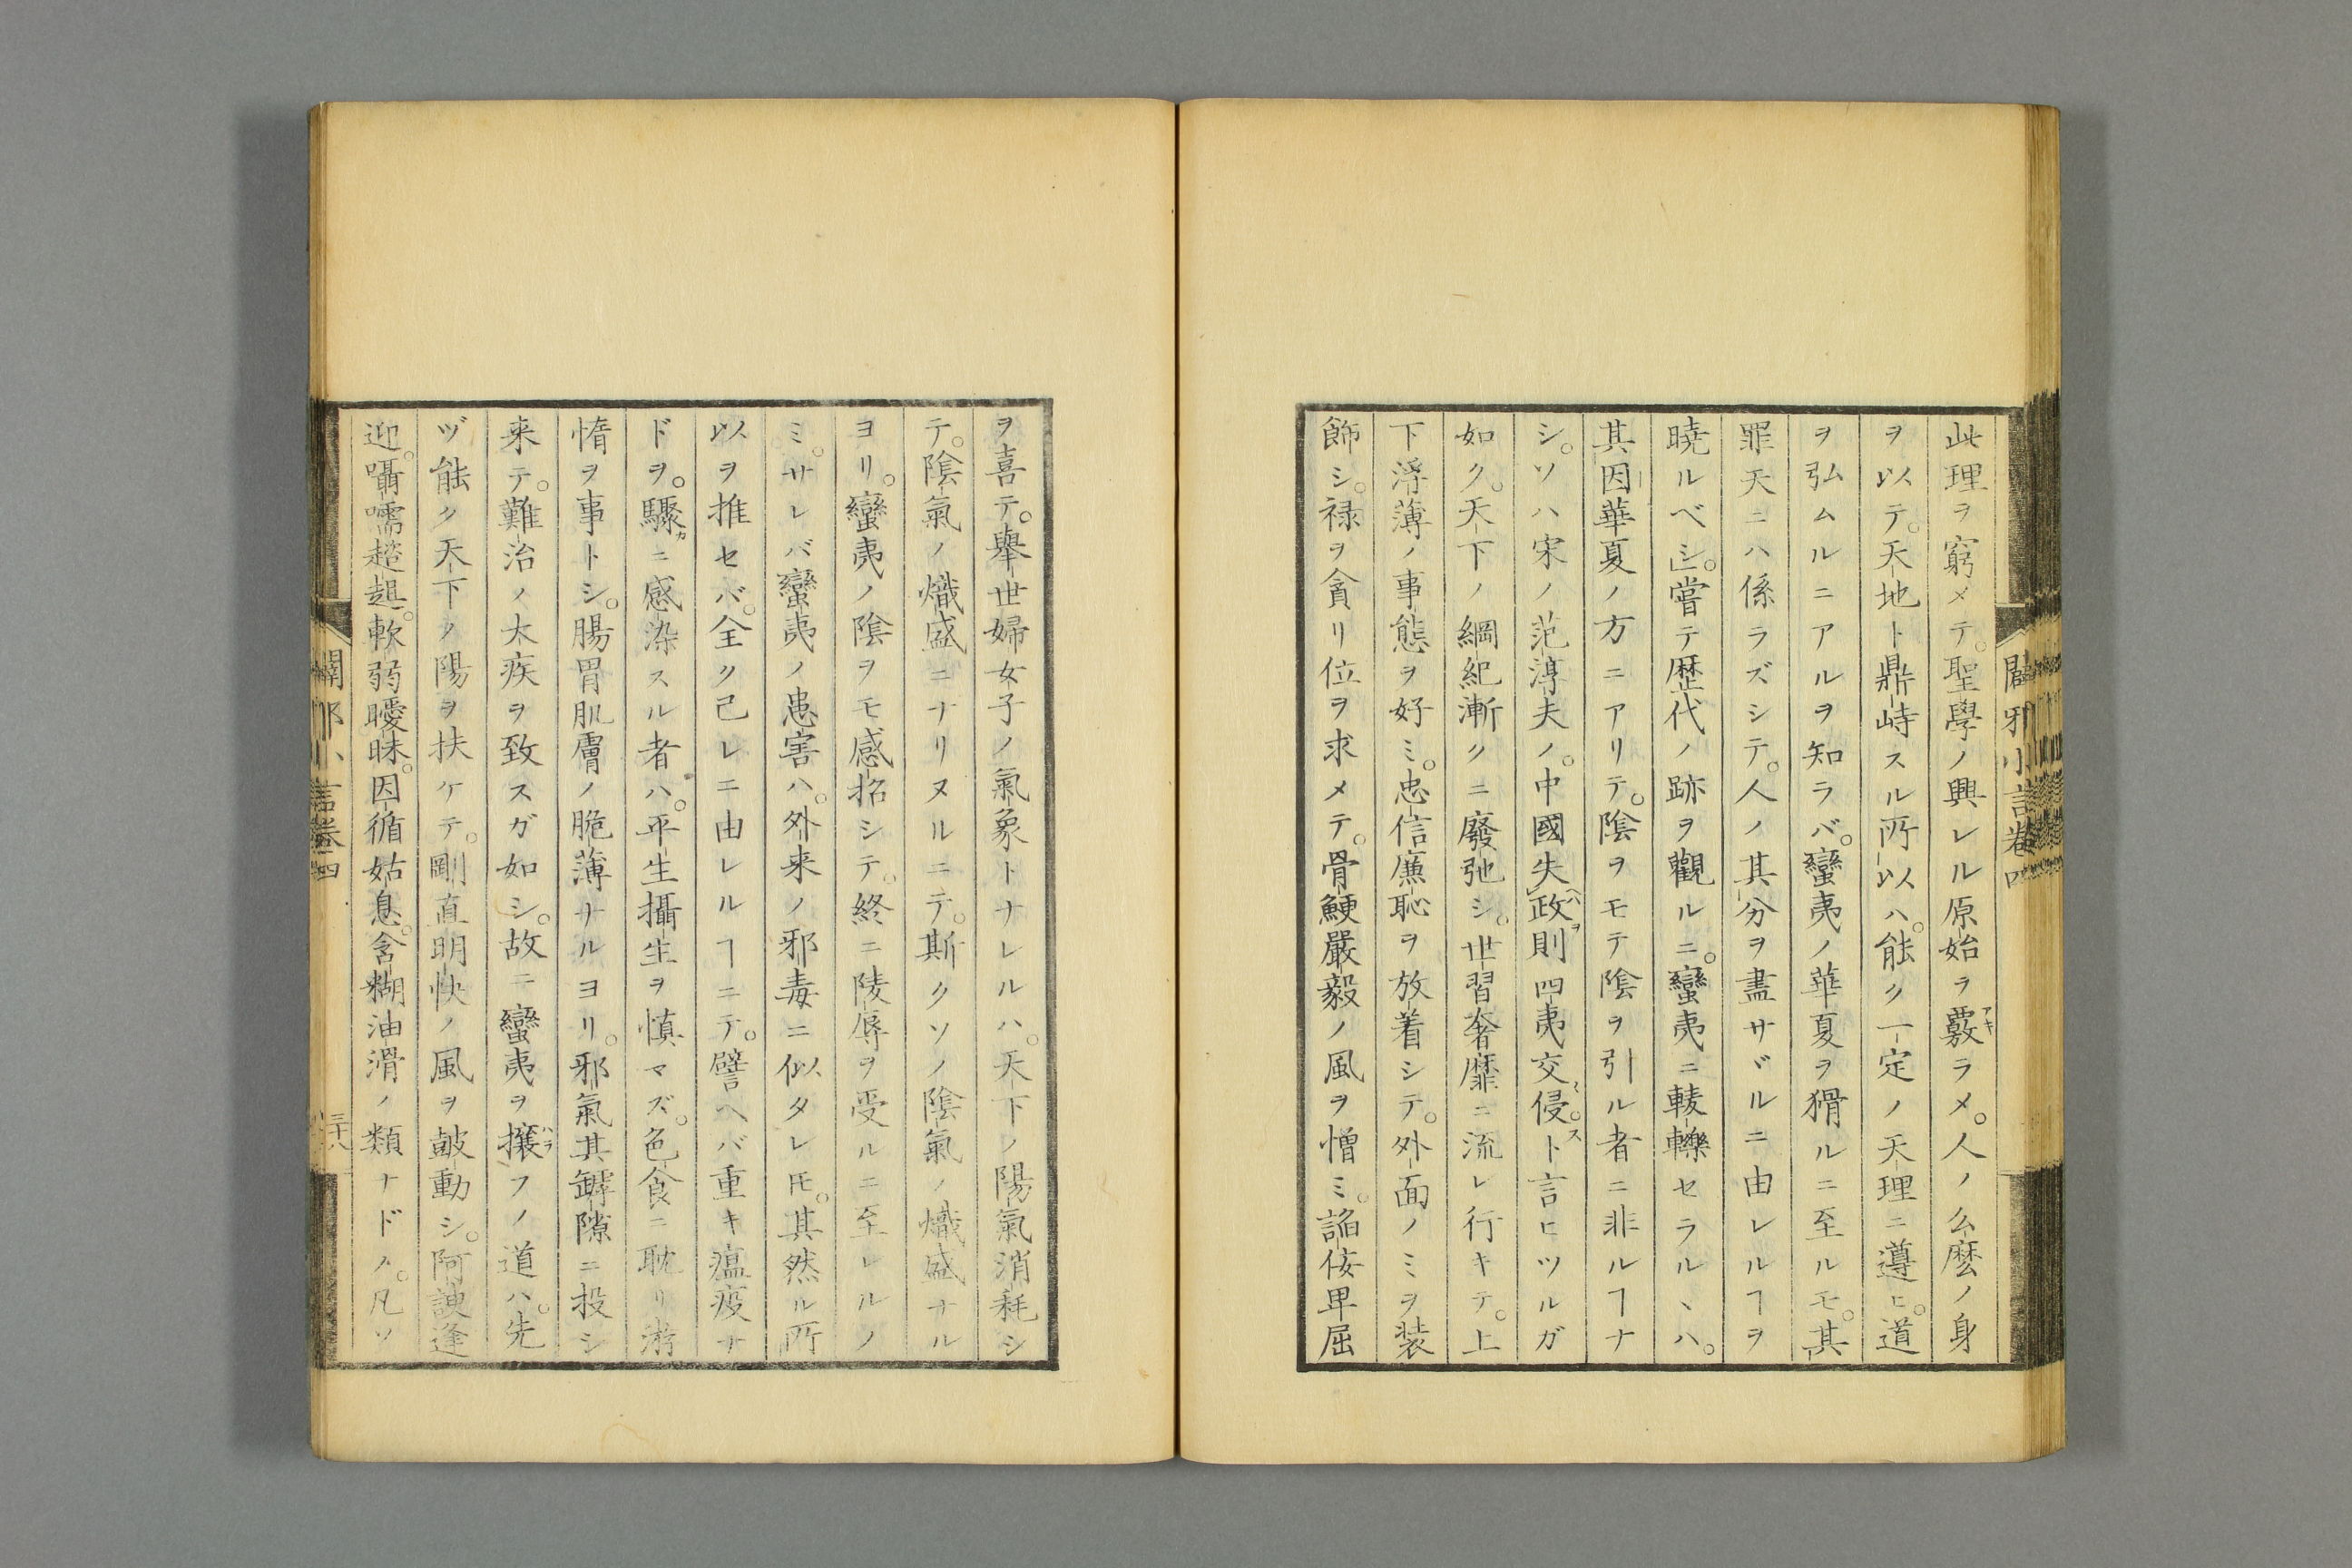 闢邪小言卷四
此理ヲ窮メテ。聖學ノ興レル原始ヲ覈ラメ。人ノ幺麽ノ身
ヲ以テ。天地ト鼎峙スル所以ハ。能ク一定ノ天理ニ遵ヒ。道
ヲ弘ムルニアルヲ知ラバ。蠻夷ノ華夏ヲ猾ルニ至ルモ。其
罪天ニハ係ラズシテ。人ノ其分ヲ盡サヾルニ由レルヿヲ
曉ルベシ。嘗テ歴代ノ跡ヲ觀ルニ。蠻夷ニ轥轢セラルヽハ。
其因華夏ノ方ニアリテ。陰ヲモテ陰ヲ引ル者ニ非ルヿナ
シ。ソハ宋ノ范淳夫ノ。中國失政則四夷交侵。ト言ヒツルガ
如ク。天下ノ綱紀漸クニ廢弛シ。世習奢靡ニ流レ行キテ。上
下浮薄ノ事態ヲ好ミ。忠信廉恥ヲ放着シテ。外面ノミヲ装
飾シ。禄ヲ貪リ位ヲ求メテ。骨鯁嚴毅ノ風ヲ憎ミ。諂佞卑屈
ヲ喜テ。舉世婦女子ノ氣象トナレルハ。天下ノ陽氣消耗シ
テ。陰氣ノ熾盛ニナリヌルニテ。斯クソノ陰氣ノ熾盛ナル
ヨリ。蠻夷ノ陰ヲモ感招シテ。終ニ陵辱ヲ受ルニ至レルノ
ミ。サレバ蠻夷ノ患害ハ。外来ノ邪毒ニ似タレ𪜈。其然ル所
以ヲ推セバ。全ク己レニ由レルヿニテ。譬ヘバ重キ瘟疫ナ
ドヲ。驟ニ感染スル者ハ。平生攝生ヲ慎マズ。色食ニ耽リ游
惰ヲ事トシ。腸胃肌膚ノ脆薄ナルヨリ。邪氣其罅隙ニ投シ
来テ。難治ノ大疾ヲ致スガ如シ。故ニ蠻夷ヲ攘フノ道ハ。先
ヅ能ク天下ノ陽ヲ扶ケテ。剛直明快ノ風ヲ鼓動シ。阿諛逢
迎。囁嚅趦趄。軟弱曖昧。因循姑息。含糊油滑ノ類ナドノ。凡ソ
闢邪小言卷四
三十八